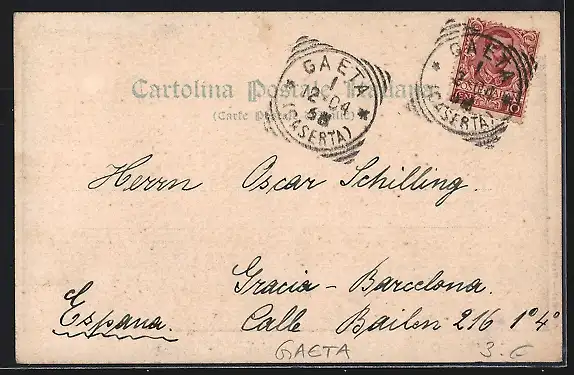 Cartolina Postale Italiana
(Carte Postale d'Italie)
* GAETA *
1
12-04
(CASERTA)
* GAETA
(CASERTA)
Herrn Oscar Schilling.
Gracia - Barcelona.
España. Calle Bailen 216 1º 4ª
GAETA 3.-